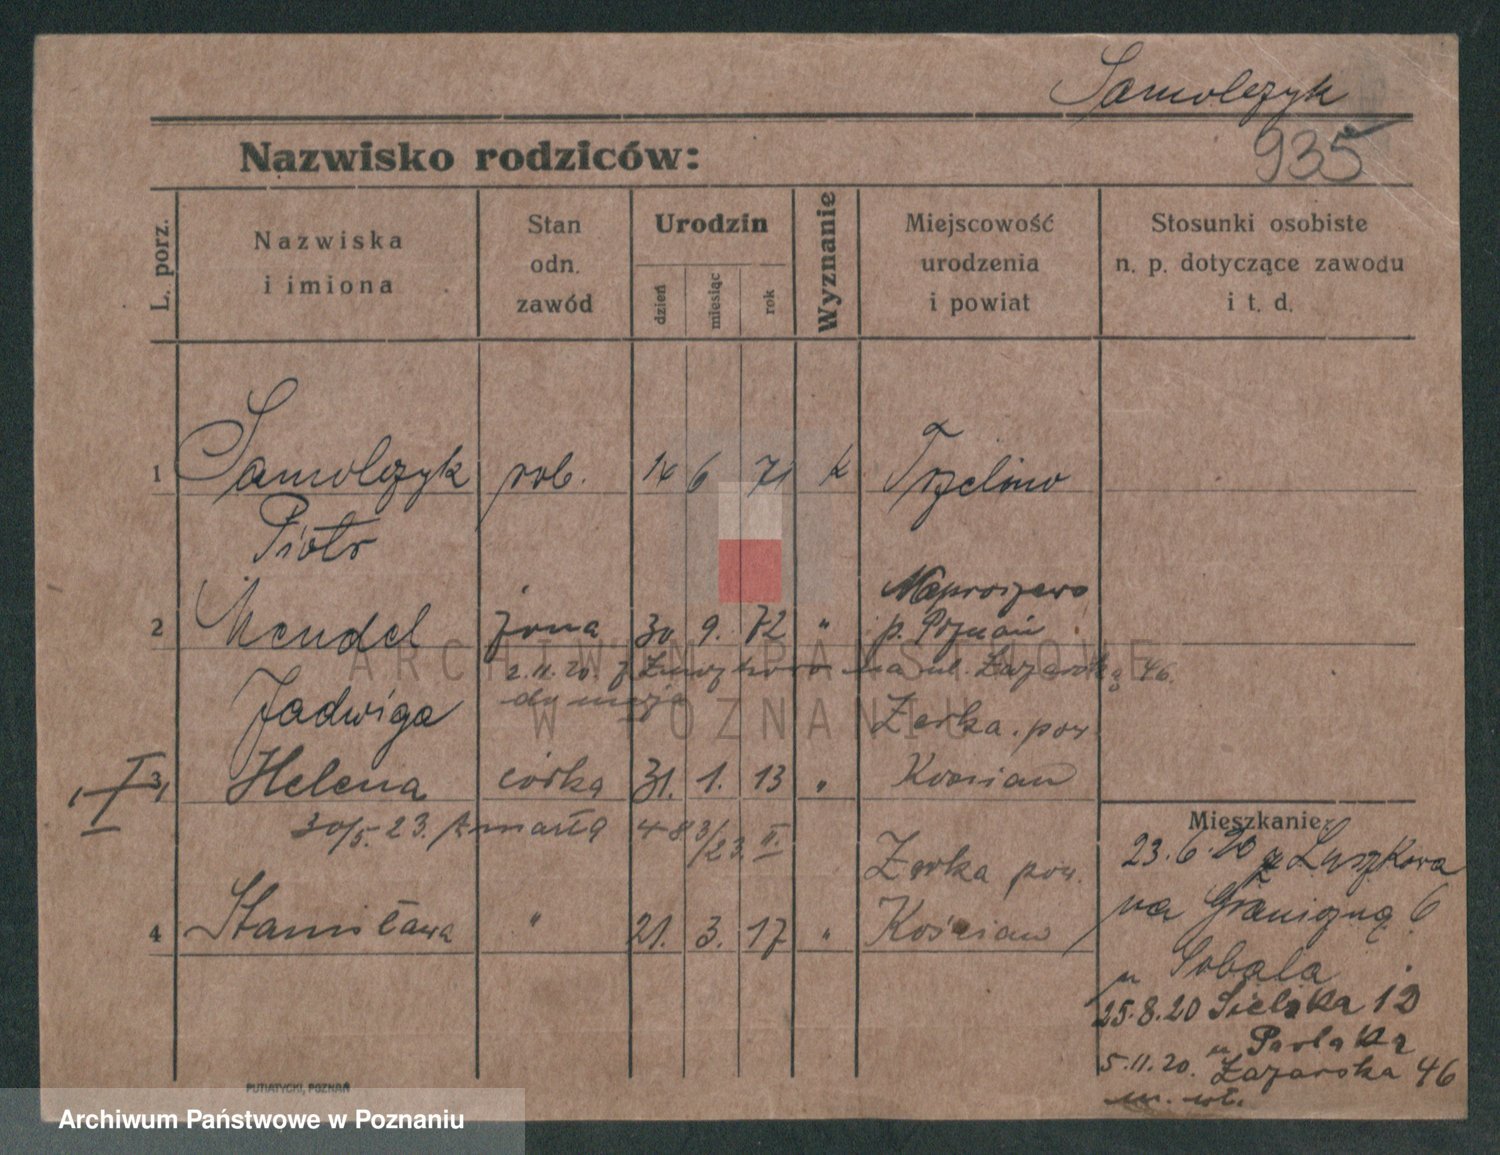 Samolczyk
935
Nazwisko rodziców:
L. porz.
Nazwiska
i imiona
Stan
odn.
zawód
Urodzin
dzień
miesiąc
rok
Wyznanie
Miejscowość
urodzenia
i powiat
Stosunki osobiste
n. p. dotyczące zawodu
i t. d.
1 Samolczyk rob. 6 71 k. Trzelino
Piotr
Naproszewo
2 Mendel żona 30 9. 72 " p. Poznań
2.11.20. z na ul. Łazarską 46.
Jadwiga Zerka. pow.
3 Helena córka 31. 1. 13 " Kościan
30/5. 23. zmarła 3/23. II.
Zerka pow.
4 Stanisława " 21. 3. 17 " Kościan
Mieszkanie:
23.6.20 z Luszkowa
na Graniczną 6
u Sobala
25.8.20 Sielska 12
u Pawlaka
5.11.20. Łazarska 46
PUTIATYCKI, POZNAŃ
ARCHIWUM PAŃSTWOWE
W POZNANIU
Archiwum Państwowe w Poznaniu